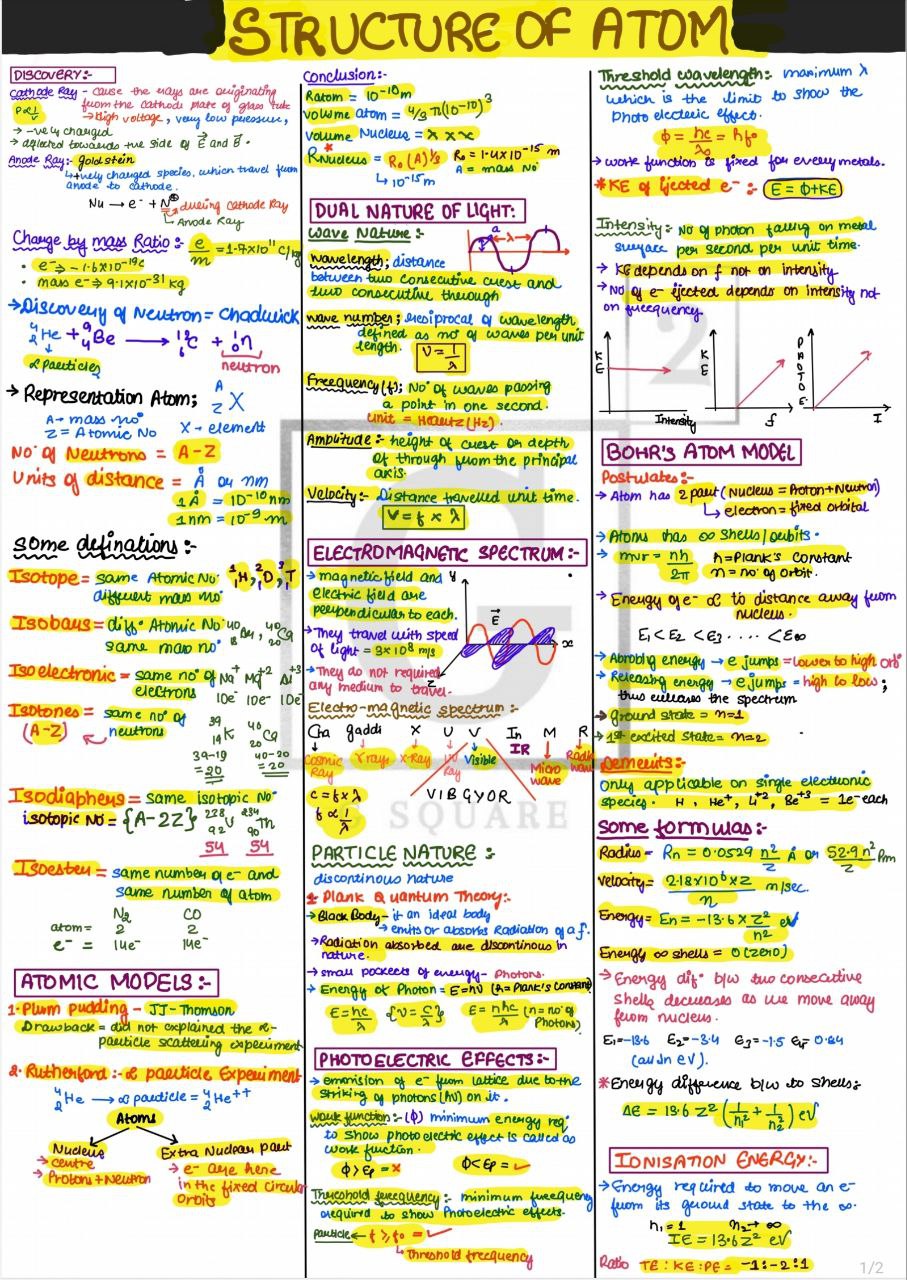 STRUCTURE OF ATOM
DISCOVERY:-
Cathode Ray - cause the rays are originating
from the cathode plate of glass tube
P∝1/V
→ High voltage, very low pressure,
→ -vely charged
→ deflected towards the side of E and B.
Anode Ray:- goldstein
↳ +vely charged species, which travel from
anode to cathode.
Nu → e⁻ + N⊕ → dueing cathode Ray
↳ Anode Ray
Charge by mass Ratio: e/m = 1.7×10¹¹ C/kg
• e⁻ → -1.6×10⁻¹⁹C
• mass e⁻ → 9.1×10⁻³¹ kg
→ Discovery of Neutron = Chadwick
⁴₂He + ⁹₄Be → ¹²₆C + ¹₀n
↓
α particles
neutron
→ Representation Atom; ᴬ_Z X
A → mass no
Z = Atomic No X → element
No of Neutrons = A-Z
Units of distance = Å or nm
1Å = 10⁻¹⁰nm
1nm = 10⁻⁹ m
Some definations:-
Isotope = same Atomic No ¹₁H, ²₁D, ³₁T
different mass no
Isobars = diff. Atomic No ⁴⁰₁₈Ar, ⁴⁰₂₀Ca
same mass no
Isoelectronic = same no of Na⁺ Mg⁺² Al⁺³
electrons 10e⁻ 10e⁻ 10e⁻
Isotones = same no of
(A-Z) neutrons ³⁹₁₉K ⁴⁰₂₀Ca
39-19 40-20
= 20 = 20
Isodiaphers = same isotopic No
isotopic No = {A-2Z} ²³⁸₉₂U ²³⁴₉₀Th
54 54
Isoester = same number of e⁻ and
same number of atom
N₂ CO
atom = 2 2
e⁻ = 14e⁻ 14e⁻
ATOMIC MODELS:-
1. Plum pudding - JJ-Thomson
Drawback = did not explained the α-
particle scattering experiment
2. Rutherford :- α particle Experiment
⁴₂He → α particle = ⁴₂He⁺⁺
Atoms
Nucleus
→ centre
→ Protons + Neutron
Extra Nuclear part
→ e⁻ are here
in the fixed circular
orbits
Conclusion:-
Ratom = 10⁻¹⁰m
volume atom = 4/3 π(10⁻¹⁰)³
volume Nucleus = x × x
R*Nucleus = R₀(A)^1/3 R₀ = 1.4×10⁻¹⁵ m
↳ 10⁻¹⁵m A = mass No
DUAL NATURE OF LIGHT:
Wave Nature:-
a
λ
Wavelength; distance
between two consecutive crest and
two consecutive through
wave number; reciprocal of wavelength
defined as no of waves per unit
length. ν̄ = 1/λ
Freequency(f); No of waves passing
a point in one second.
unit = Heartz(Hz)
Amplitude:- height of crest or depth
of through from the principal
axis.
Velocity:- Distance travelled unit time.
V = f × λ
ELECTROMAGNETIC SPECTRUM:-
→ magnetic field and
electric field are
perpendicular to each.
→ They travel with speed
of light = 3×10⁸ m/s
→ They do not required
any medium to travel.
y
E
x
z
Electro-magnetic spectrum:-
Cha gaddi X U V In M R
IR
Cosmic Ray γ rays x-Ray UV Ray Visible Micro wave Radio wave
VIBGYOR
c = f × λ
f ∝ 1/λ
G SQUARE
PARTICLE NATURE :-
discontinous nature
1. Plank Quantum Theory:-
→ Black Body - it an ideal body
→ emits or absorbs Radiation of a f.
→ Radiation absorbed are discontinous in
nature.
→ small pockets of energy - Photons.
→ Energy of Photon = E = hν (h = Plank's Constant)
E = hc/λ {ν = c/λ} E = nhc/λ (n = no of Photons)
PHOTOELECTRIC EFFECTS:-
→ emmision of e⁻ from lattice due to the
striking of photons (hν) on it.
work function :- (ϕ) minimum energy req.
to show photo electric effect is called as
work function.
ϕ > Ep = × ϕ < Ep = ✓
Threshold freequency:- minimum freequency
required to show Photoelectric effects.
particle ← f ≥ f₀ = ✓
↳ Threshold freequency
Threshold wavelength: maximum λ
which is the limit to show the
Photo electric effect.
ϕ = hc/λ₀ = hf₀
→ work function is fixed for every metals.
*KE of ejected e⁻ :- E = ϕ+KE
Intensity:- No of photon falling on metal
surface per second per unit time.
→ KE depends on f not on intensity
→ No of e⁻ ejected depends on intensity not
on frequency.
KE
Intensity
KE
f
PHOTOE.
I
BOHR'S ATOM MODEL
Postulates:-
→ Atom has 2 part (Nucleus = Proton+Neutron)
↳ electron = fixed orbital
→ Atoms has ∞ Shells/orbits.
→ mvr = nh/2π h = Plank's Constant
n = no of orbit.
→ Energy of e⁻ ∝ to distance away from
nucleus.
E₁ < E₂ < E₃ ..... < E∞
→ Abrobing energy → e jumps = lower to high orb
→ Releasing energy → e jumps = high to low;
thus the spectrum
→ ground state = n=1
→ 1st excited state = n=2
Demerits:-
Only applicable on single electronic
species. H, He⁺, Li⁺², Be⁺³ = 1e⁻ each
Some formulas:-
Radius - Rn = 0.0529 n²/Z Å or 52.9 n²/Z Pm
velocity = 2.18×10⁶×Z/n m/sec.
Energy = En = -13.6 × Z²/n² eV
Energy ∞ shells = 0 (zero)
→ Energy dif. b/w two consecutive
Shells decreases as we move away
from nucleus.
E₁=-13.6 E₂=-3.4 E₃=-1.5 E₄=0.84
(all in eV).
*Energy difference b/w to Shells:
ΔE = 13.6 Z² (1/n₁² + 1/n₂²) eV
IONISATION ENERGY:-
→ Energy required to move an e⁻
from its ground state to the ∞.
n₁ = 1 n₂ → ∞
IE = 13.6 Z² eV
Ratio TE : KE : PE = -1 : -2 : 1
1/2